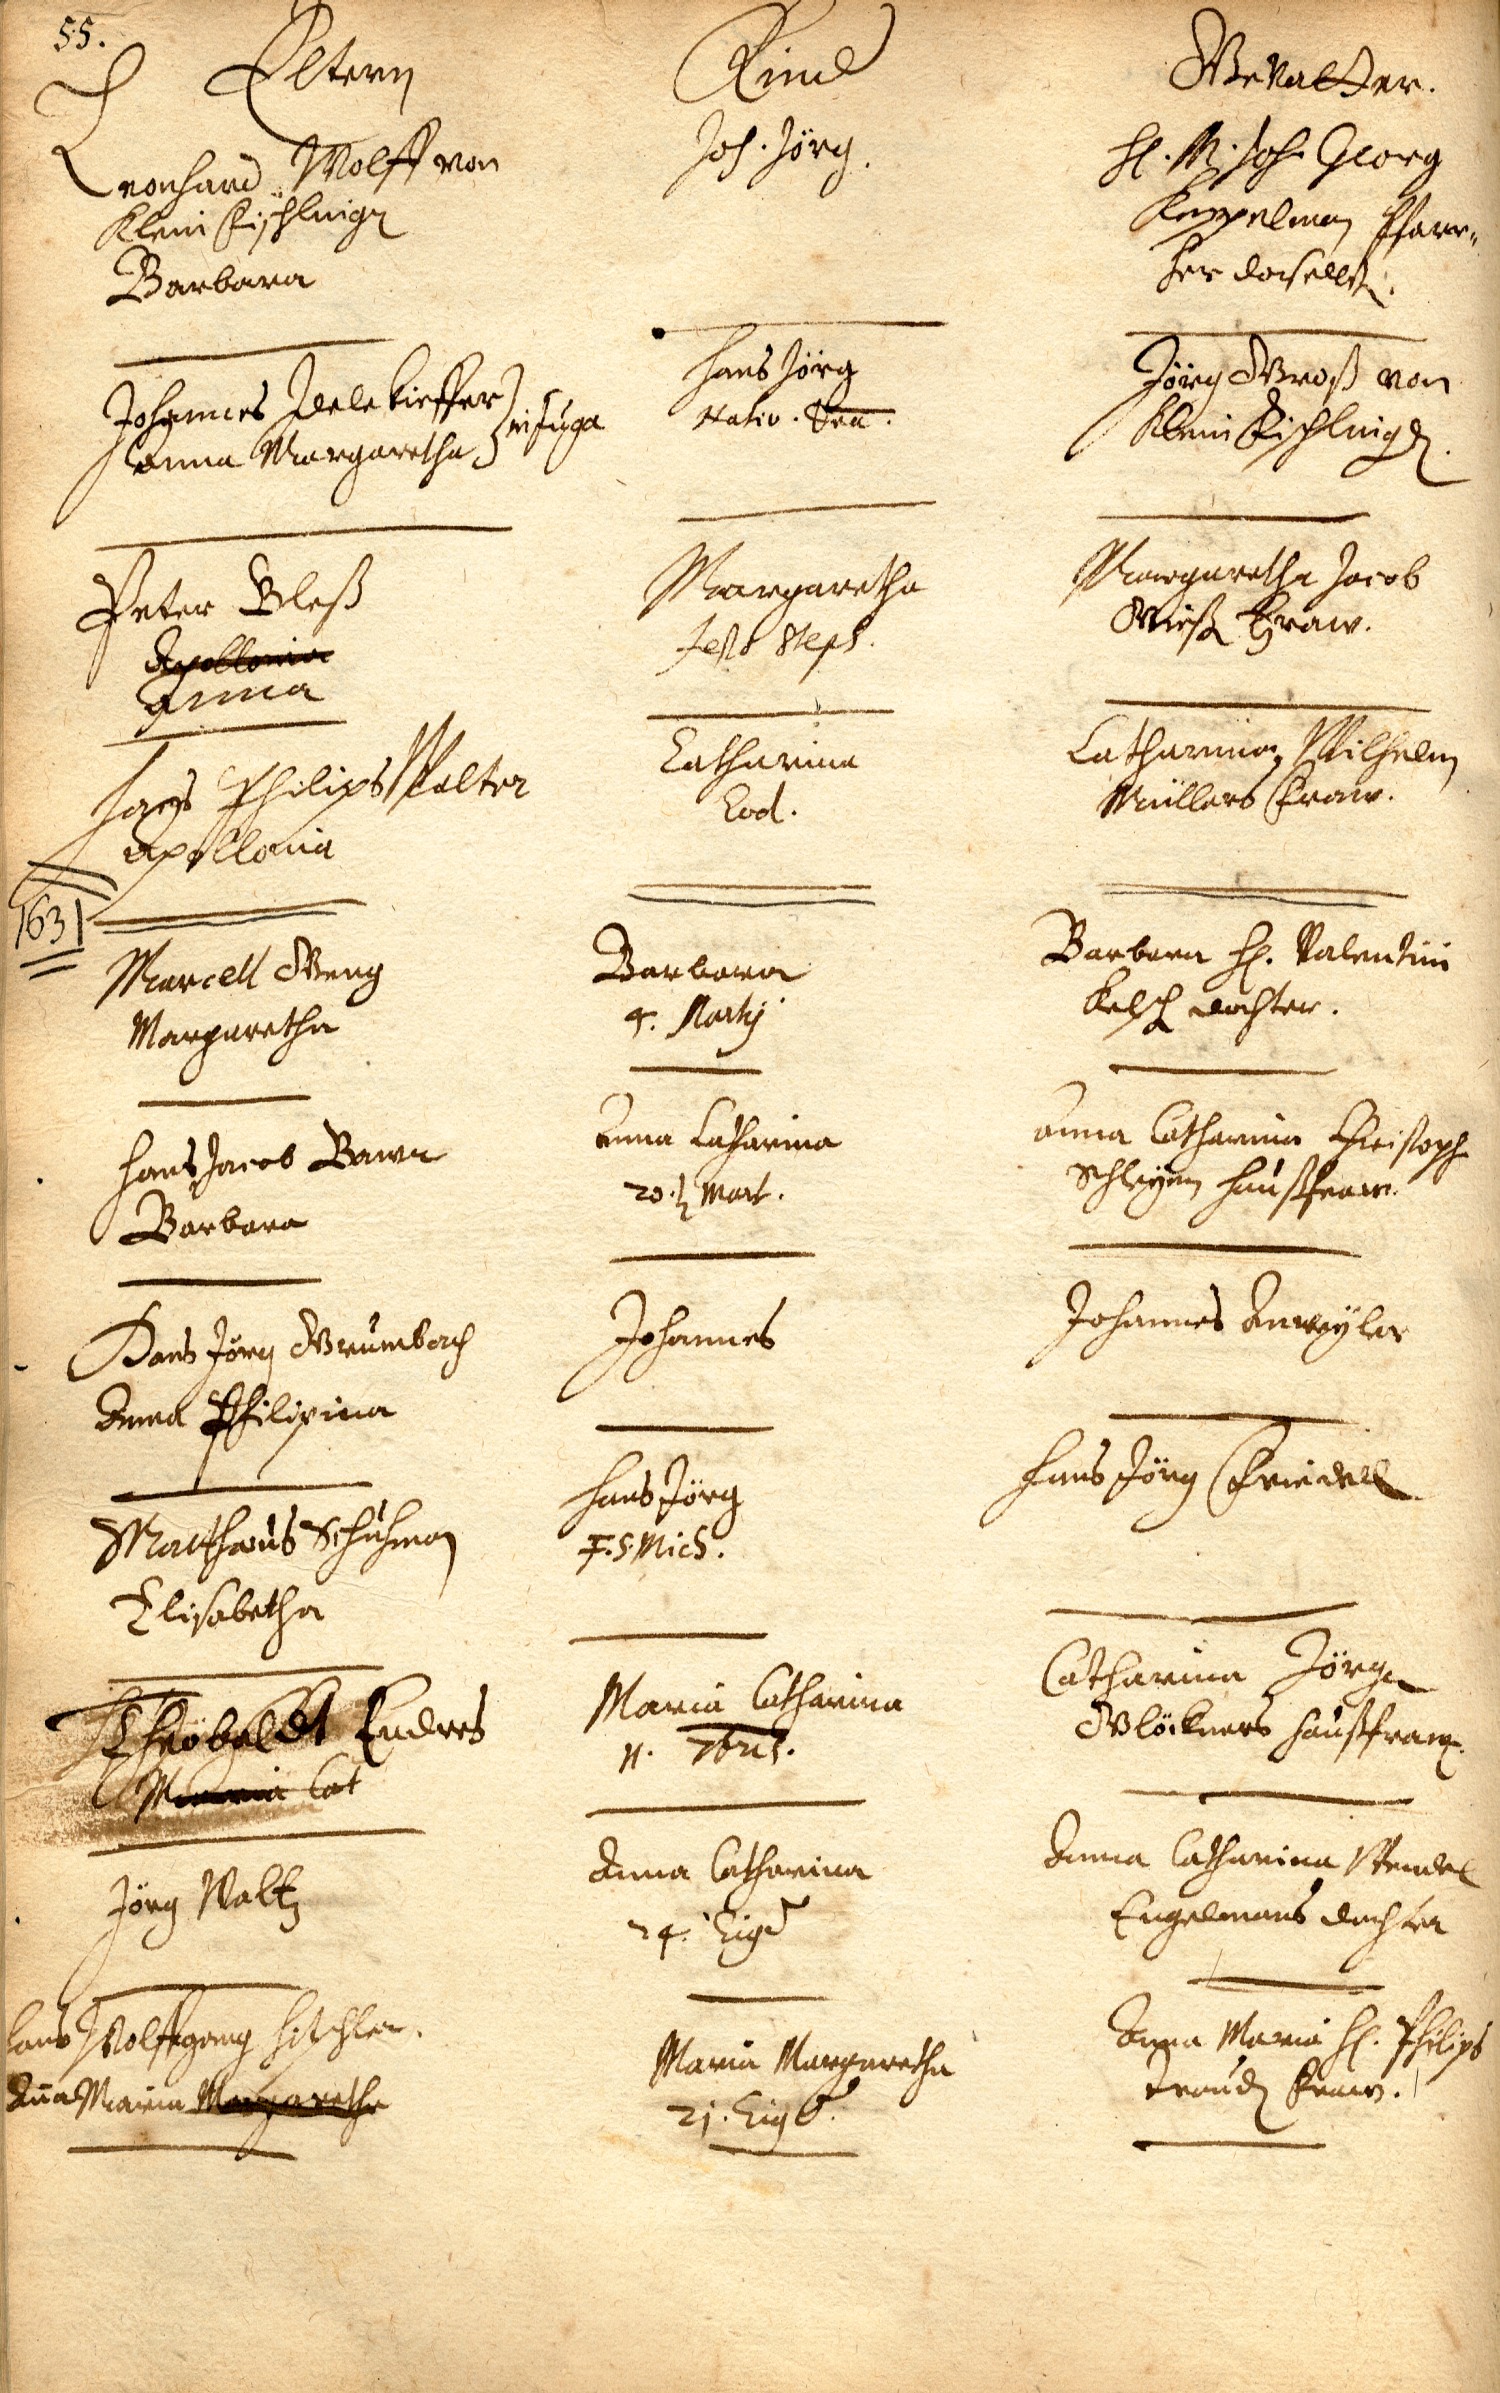 55.
Eltern
Kind
Gevatter.
Leonhard Wolff von
Klein Fischlingen
Barbara
Joh. Jörg.
H. M. Joh. Georg
Keppelman Pfarr-
her daselbst.
Johannes Edelkieffer
Anna Margaretha
in fuga
Hans Jörg
Nativ.
Jörg Groß von
Klein Fischlingen.
Peter Bleß
Apollonia
Anna
Margaretha
Festo Steph.
Margaretha Jacob
Fraw.
Hans Philips Walter
Apollonia
Catharina
Eod.
Catharina, Wilhelm
Müllers Fraw.
1631
Marcell Geng
Margaretha
Barbara
4. Martij
Barbara H. Valentini
dochter.
Hans Jacob Bawr
Barbara
Anna Catharina
20. Mart.
Anna Catharina Christoph
Schleyen Haußfraw.
Hans Jörg Grumbach
Anna Philipina
Johannes
Johannes Anweyler
Matthaeus Schuhman
Elisabetha
Hans Jörg
F. S. Mich.
Hans Jörg Friedell
Theobaldt Endres
Maria Cat
Maria Catharina
11. 7bris.
Catharina Jörg
Glöckners Haußfraw.
Jörg Waltz
Anna Catharina
24.
Anna Catharina Wendel
Engelmans dochter
Hans Wolffgang Hitschler.
Anna Maria Margaretha
Maria Margaretha
21.
Anna Maria H. Philips
Fraw.